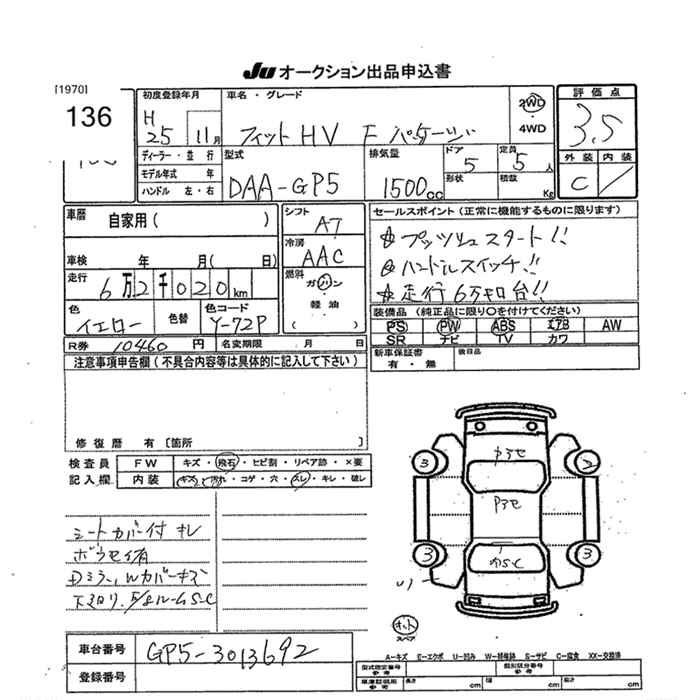 JU オークション出品申込書
[1970]
136
初度登録年月
H
25 11月
車名・グレード
フィット HV F パッケージ
2WD
・
4WD
評価点
3.5
外装 内装
C
ディーラー・並行
モデル年式 年
ハンドル 左・右
型式
DAA-GP5
排気量
1500cc
ドア
5
形状
定員
5人
積数
Kg
車歴
自家用( )
車検 年 月( 日)
走行
6万2千020km
色
イエロー
色替
色コード
Y-72P
シフト
A7
冷房
AAC
燃料
ガソリン
・
軽油
( )
セールスポイント(正常に機能するものに限ります)
☆プッシュスタート!!
☆ハンドルスイッチ!!
☆走行6万キロ台!!
装備品 (純正品に限り○を付けてください)
PS PW ABS エアB AW
SR ナビ TV カワ
新車保証書
有・無
後日品
R券 10460 円
名変期限 月 日
注意事項申告欄(不具合内容等は具体的に記入して下さい)
修復歴 有[箇所 ]
検査員
記入欄
FW キズ・飛石・ヒビ割・リペア跡・×要
内装 キズ・汚れ・コゲ・穴・スレ・キレ・破レ
シートカバー付 キレ
下廻り
S-C
3
3
3
車台番号 GP5-3013692
登録番号
スペア
A-キズ E-エクボ U-凹み W-補修跡 S-サビ C-腐食 XX-交換済
型式指定番号
参考
類別区分番号
参考
長さ cm
cm
cm